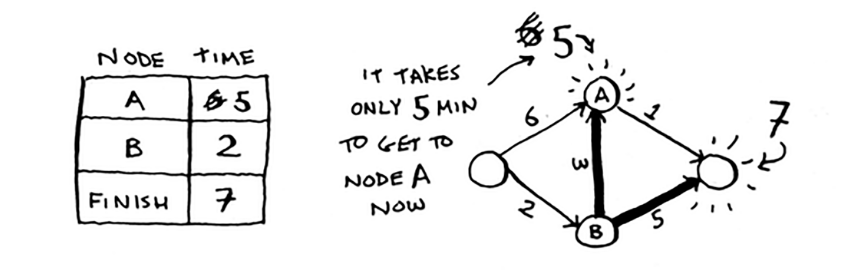 NODE TIME
A 5
B 2
FINISH 7
IT TAKES
ONLY 5 MIN
TO GET TO
NODE A
NOW
5
A
6
1
7
3
2
5
B